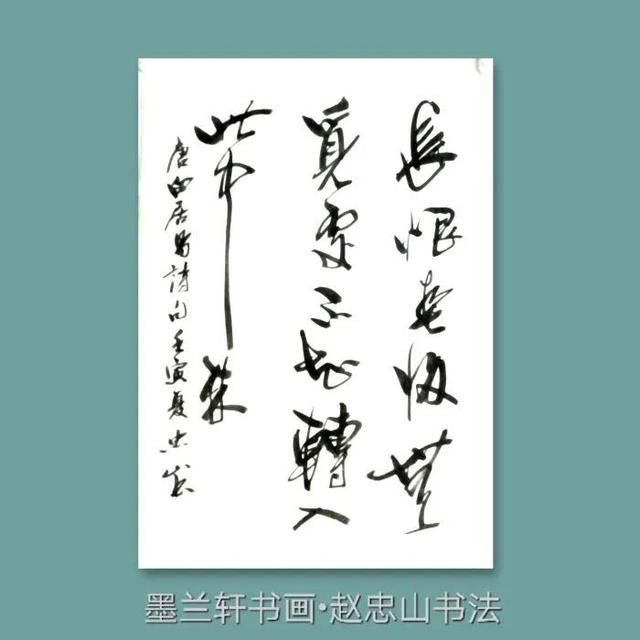 長恨春歸無
覓處不知轉入
此中來
唐白居易詩句壬寅夏忠
墨兰轩书画·赵忠山书法